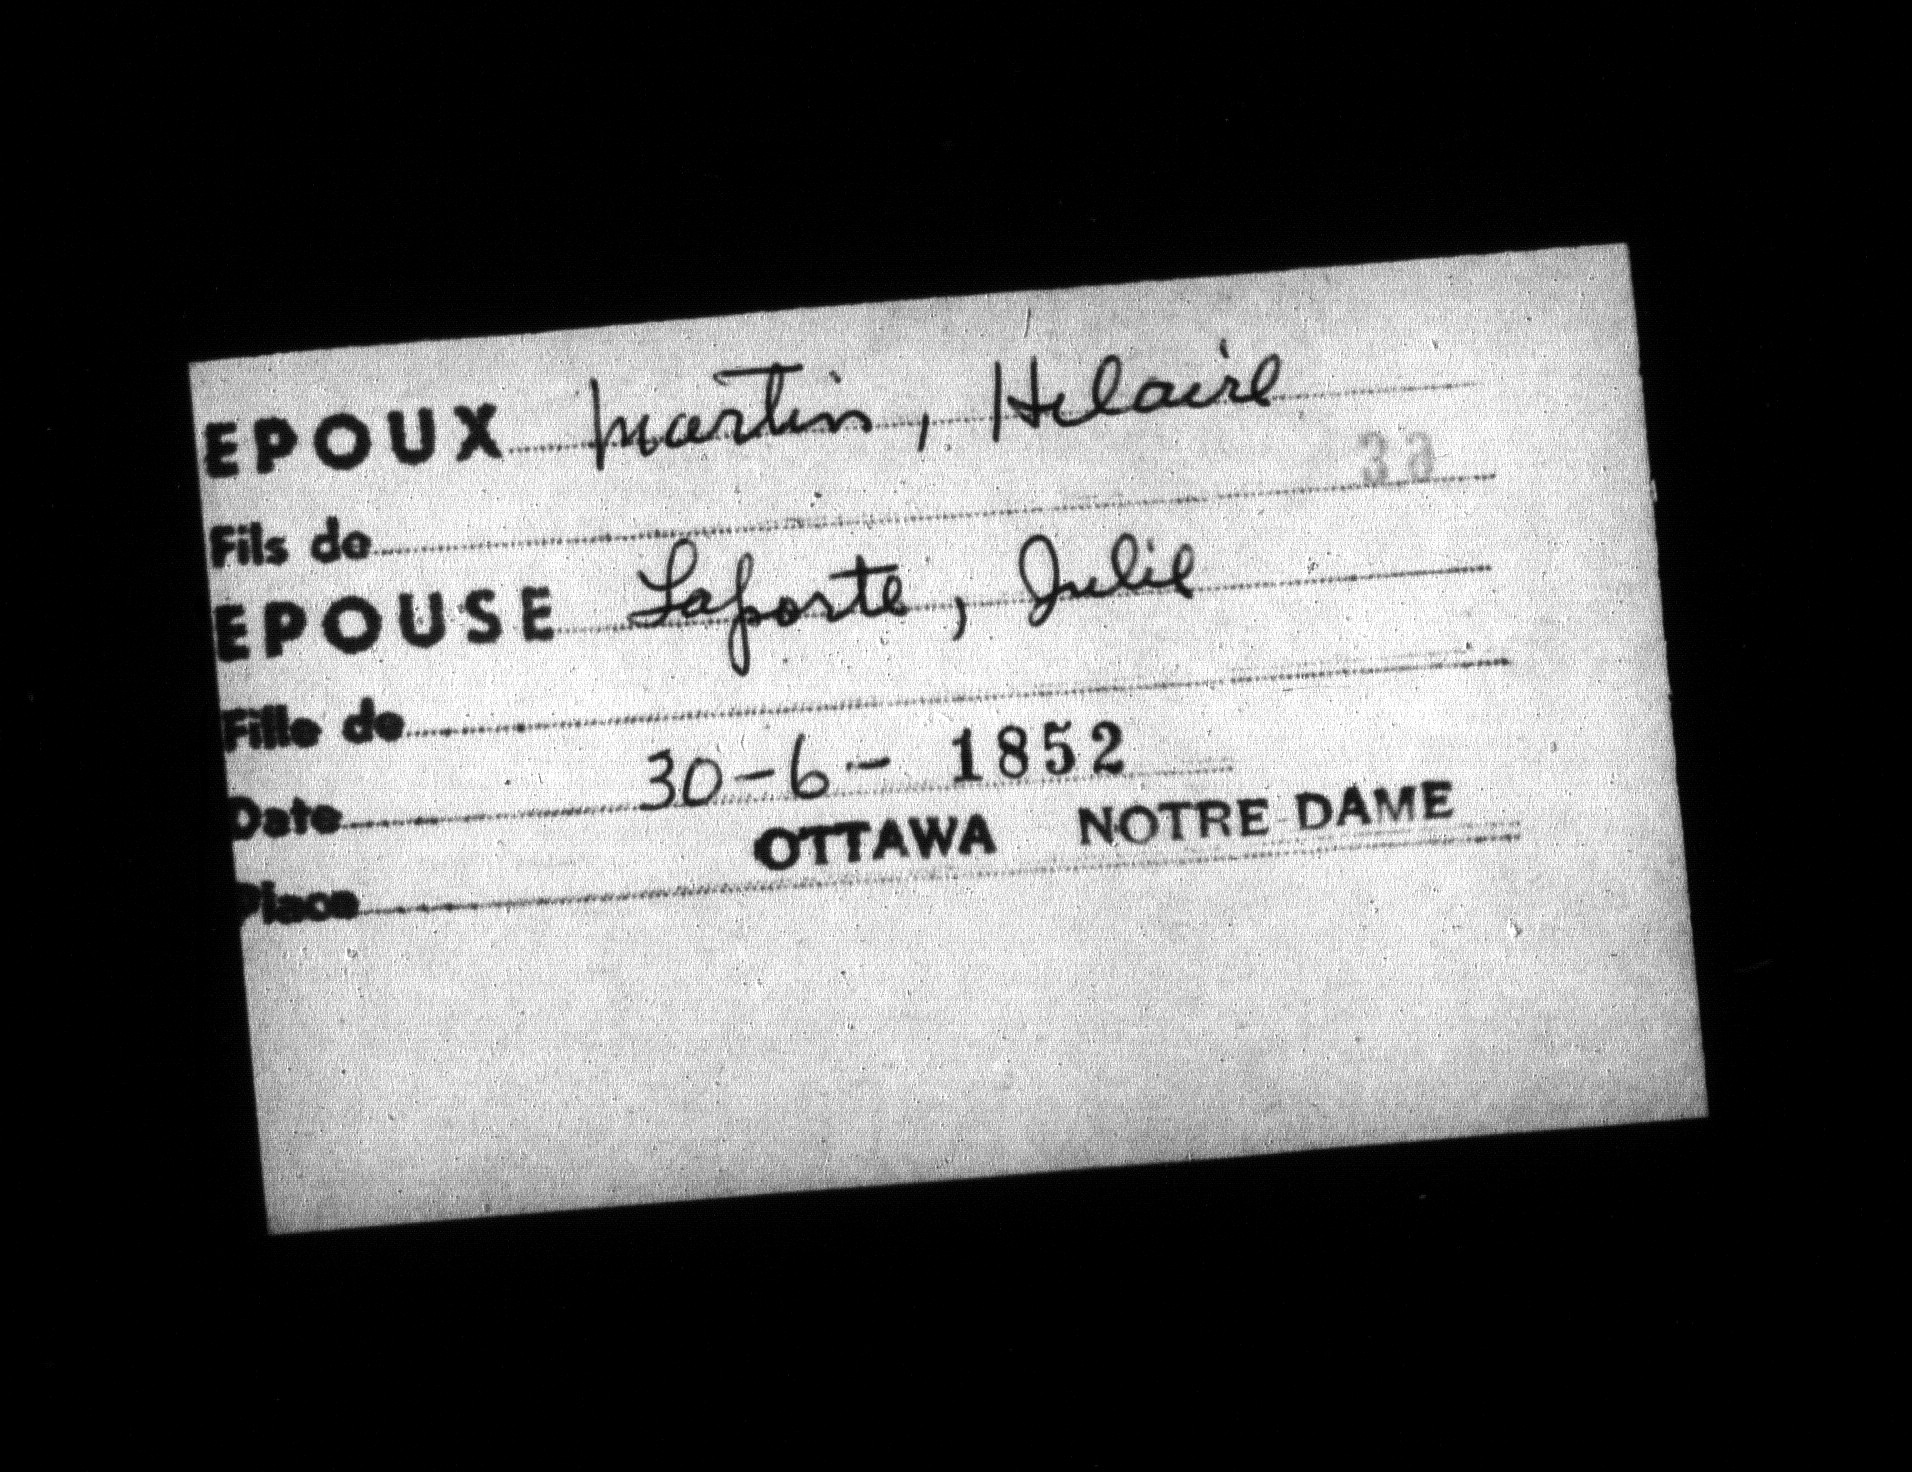 EPOUX Martin, Hilaire
39
Fils de
EPOUSE Laporte, Julie
Fille de
Date 30-6- 1852
OTTAWA NOTRE DAME
Place